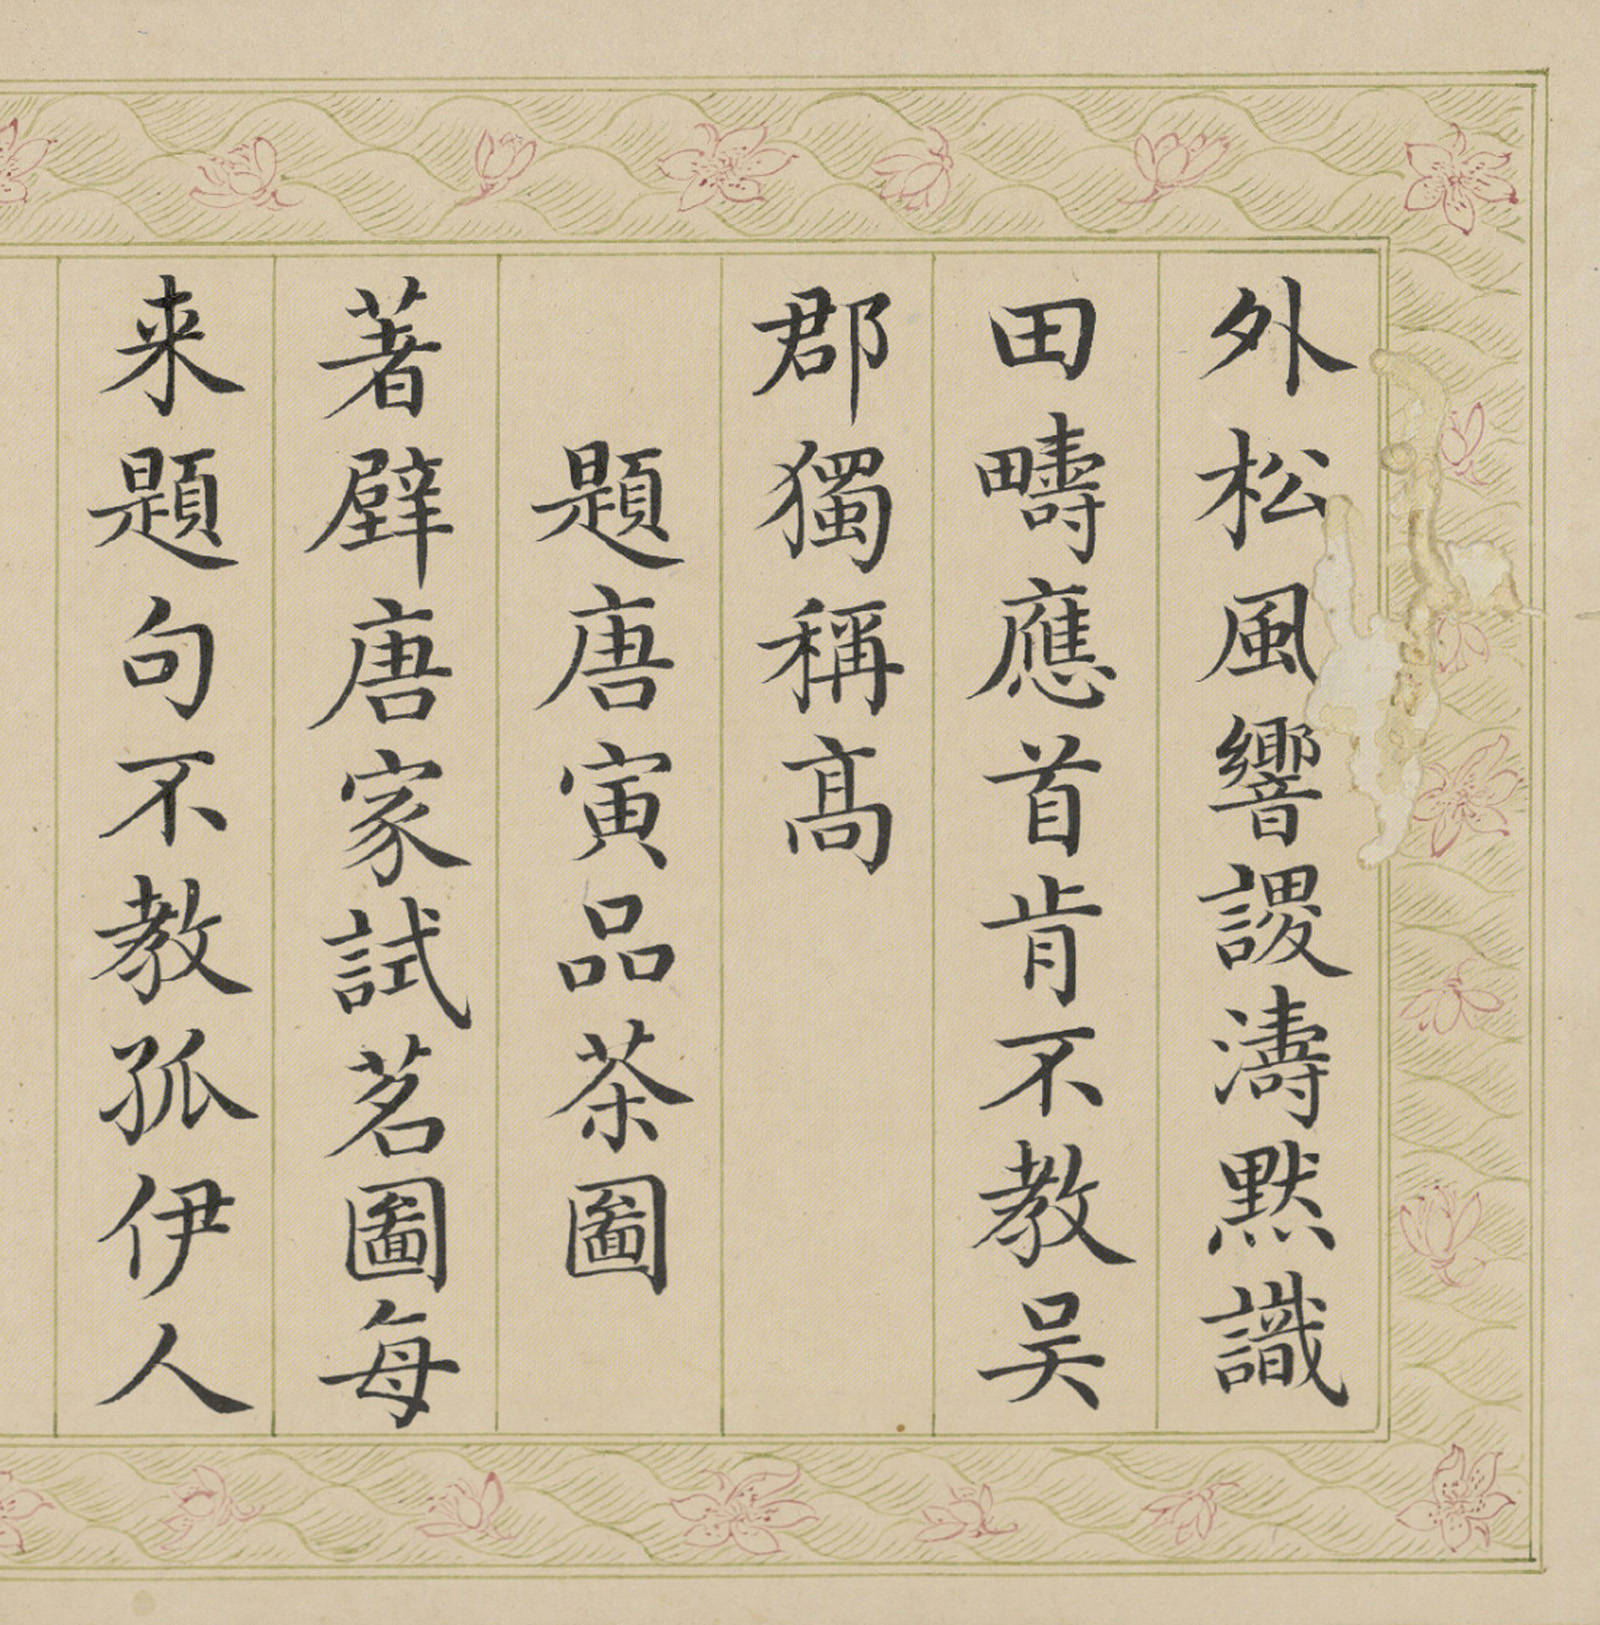 外松風響謖濤默識
田疇應首肯不教吴
郡獨稱髙
題唐寅品茶圖
著壁唐家試茗圖每
来題句不教孤伊人